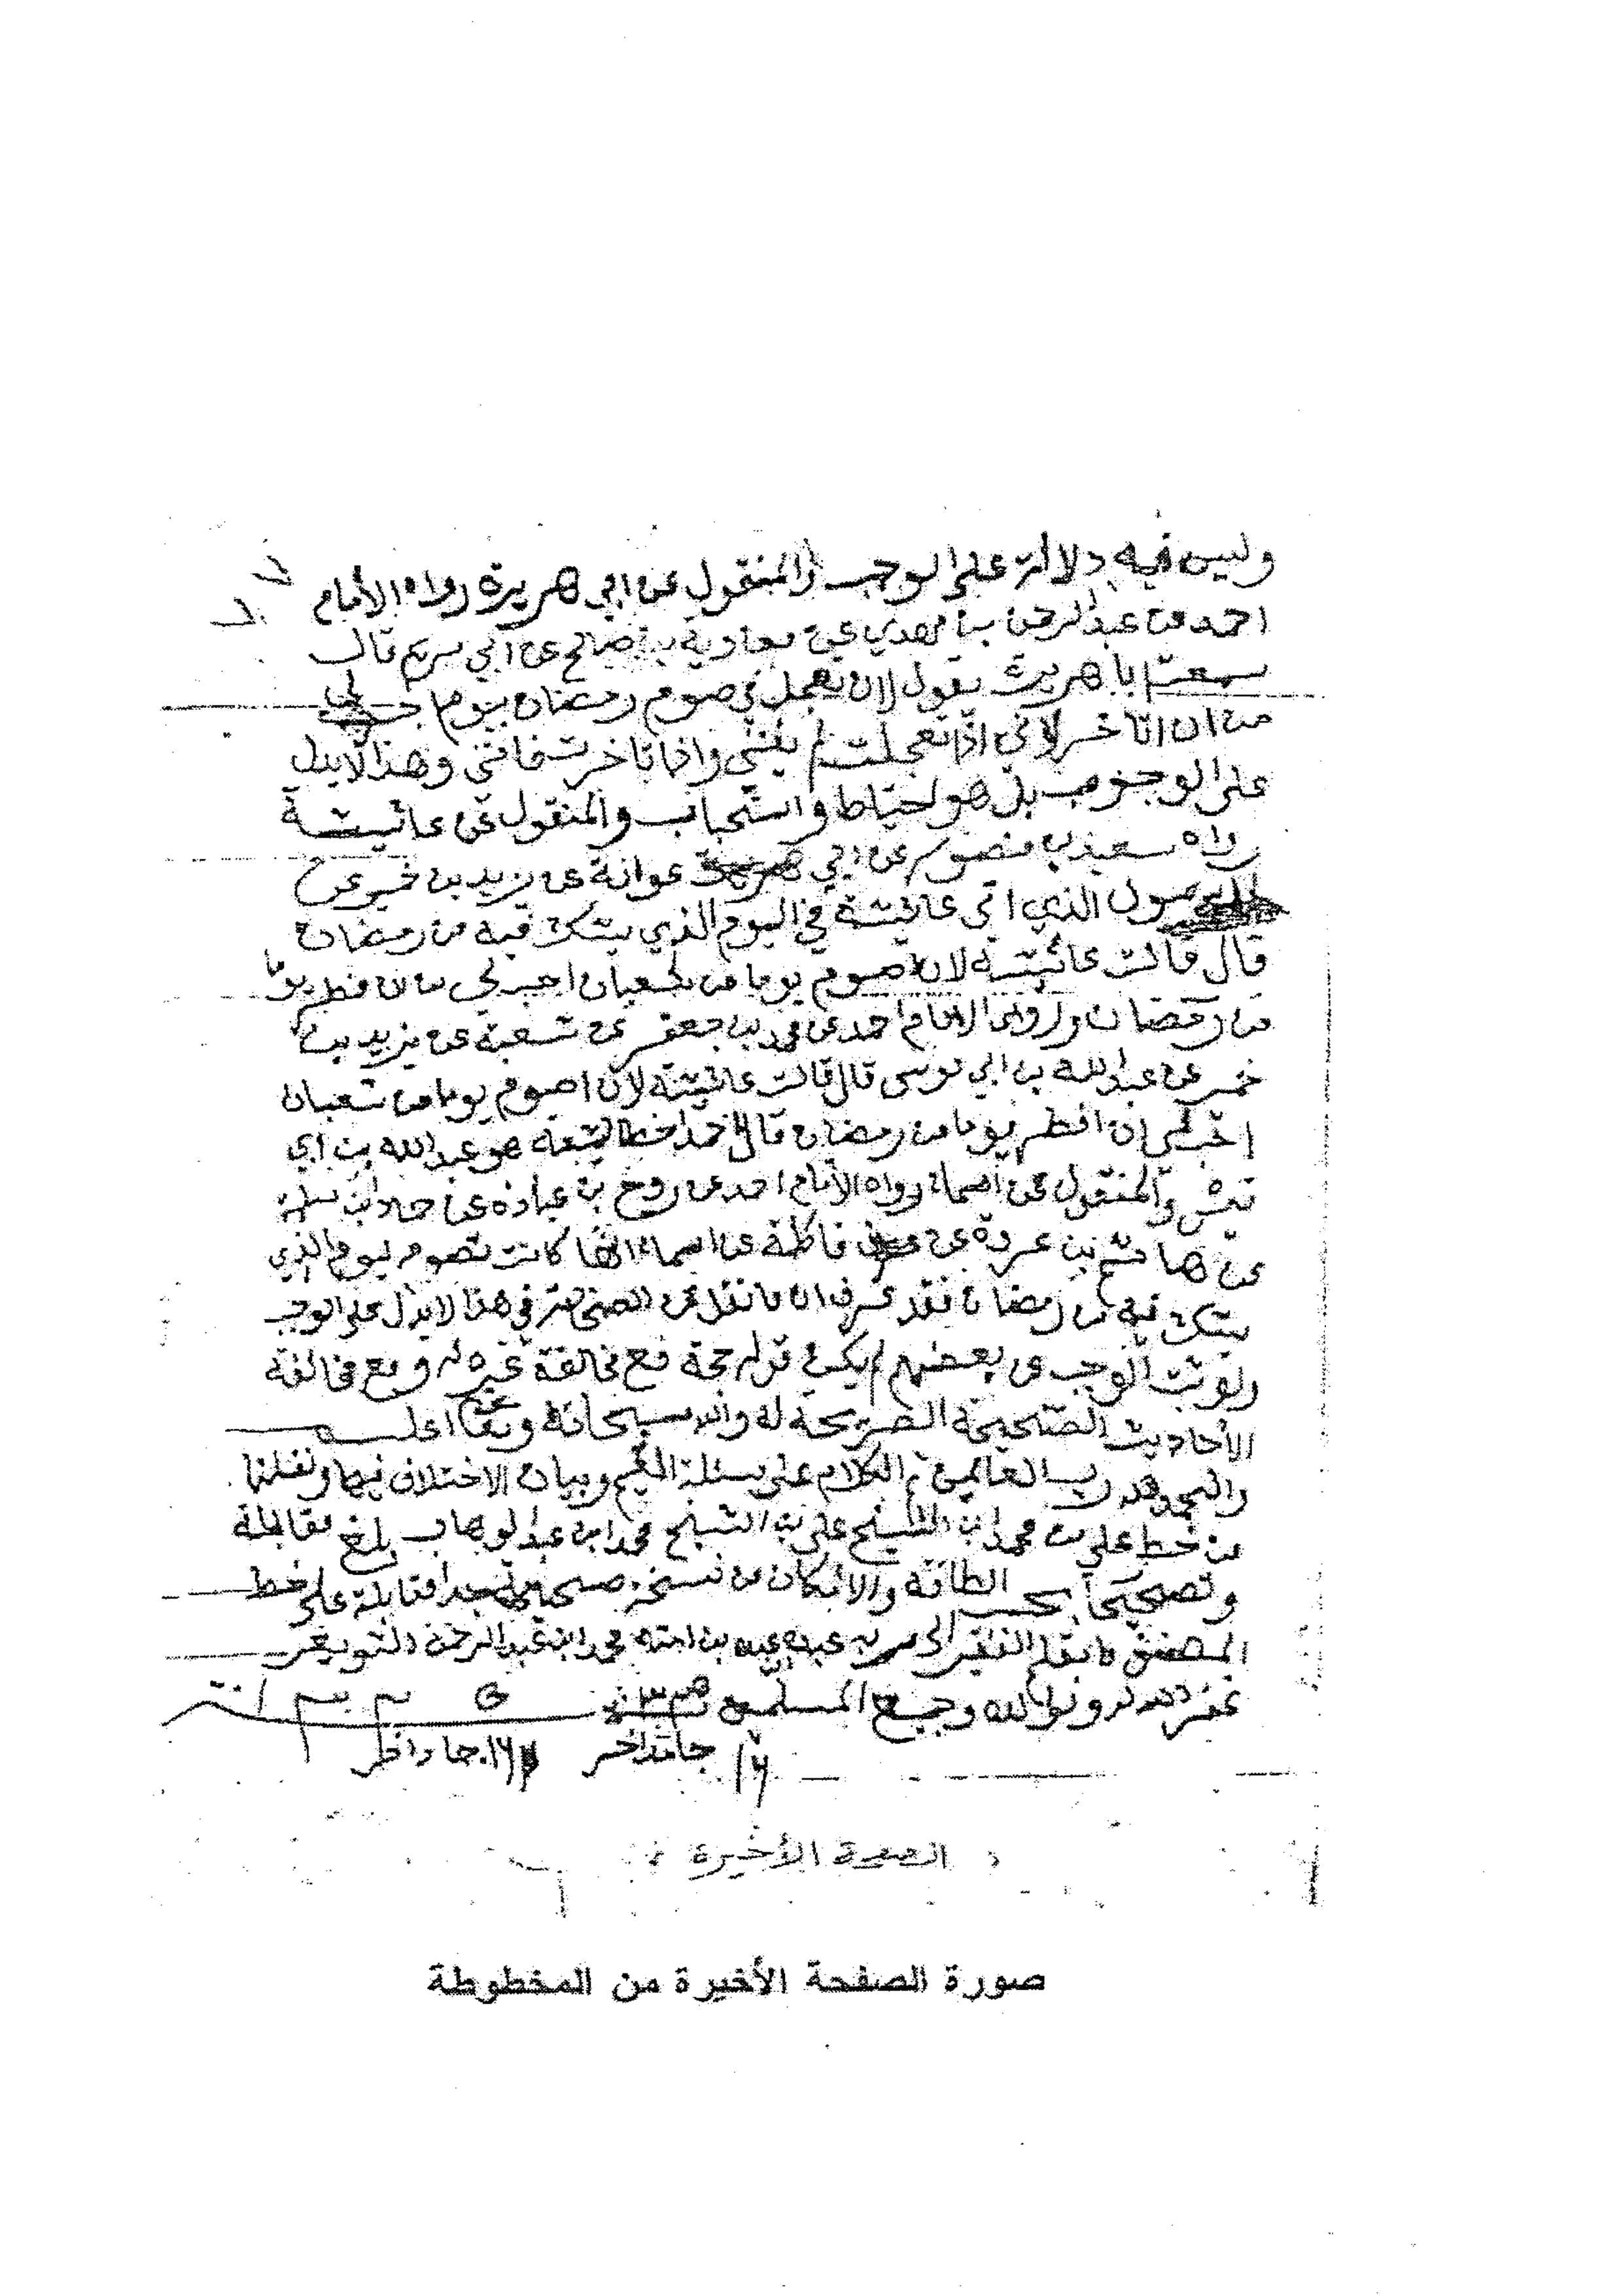 وليس فيه دلالة على الوجب والمنقول عن ابي هريرة رواه الأمام
احمد عن عبدالرحمن بن مهدي عن معاوية بن صالح عن ابي مريم قال
سمعت ابا هريرة يقول لان تعجل في صوم رمضان بيوم احب الي
من ان اتاخر لاني اذا تعجلت لم يفتني واذا تاخرت فاتني وهذا لا يدل
على الوجوب بل هو احتياط واستحباب والمنقول عن عائيشة
رواه سعيد بن منصور عن ابي عوانة عن يزيد بن خمير عن
الرسول الذي اتى عائيشة في اليوم الذي يشك فيه من رمضان
قال قالت عائيشة لان اصوم يوما من شعبان احب الي من ان افطر يوما
من رمضان ورواه الامام احمد عن محمد بن جعفر عن شعبة عن يزيد بن
خمير عن عبدالله بن ابي موسى قال قالت عائيشة لان اصوم يوما من شعبان
احب الي ان افطر يوما من رمضان قال احمد اخطا شعبه هو عبدالله بن ابي
قيس والمنقول عن اسماء رواه الأمام احمد عن روح بن عباده عن حماد بن سلمة
عن هاشم بن عروة عن فاطمة عن اسماء انها كانت تصوم اليوم الذي
يشك فيه من رمضان فقد عرف ان ما نقل عن الصحابة في هذا لا يدل على الوجب
ولو ثبت الوجب عن بعضهم لم يكن قوله حجة مع مخالفة غيره له ومع مخالفة
الأحاديث الصحيحة الصريحة له والله سبحانه وتعا اعلم
والحمد لله رب العالمين تم الكلام على مسئلة الغيم وبيان الاختلاف فيها ونقلنا
من خط علي بن محمد ابن الشيخ علي بن الشيخ محمد ابن عبدالوهاب بلغ مقابلة
وتصحيحا بحسب الطاقة والامكان من نسخة صحيحة جدا مقابلة على خط
المصنف بقلم الفقير الى ربه عبده وابن امته محمد ابن عبدالرحمن التويجر
غفر الله له ولوالديه وجميع المسلمين
١٦ جا اخر
الصفحة الأخيرة
صورة الصفحة الأخيرة من المخطوطة